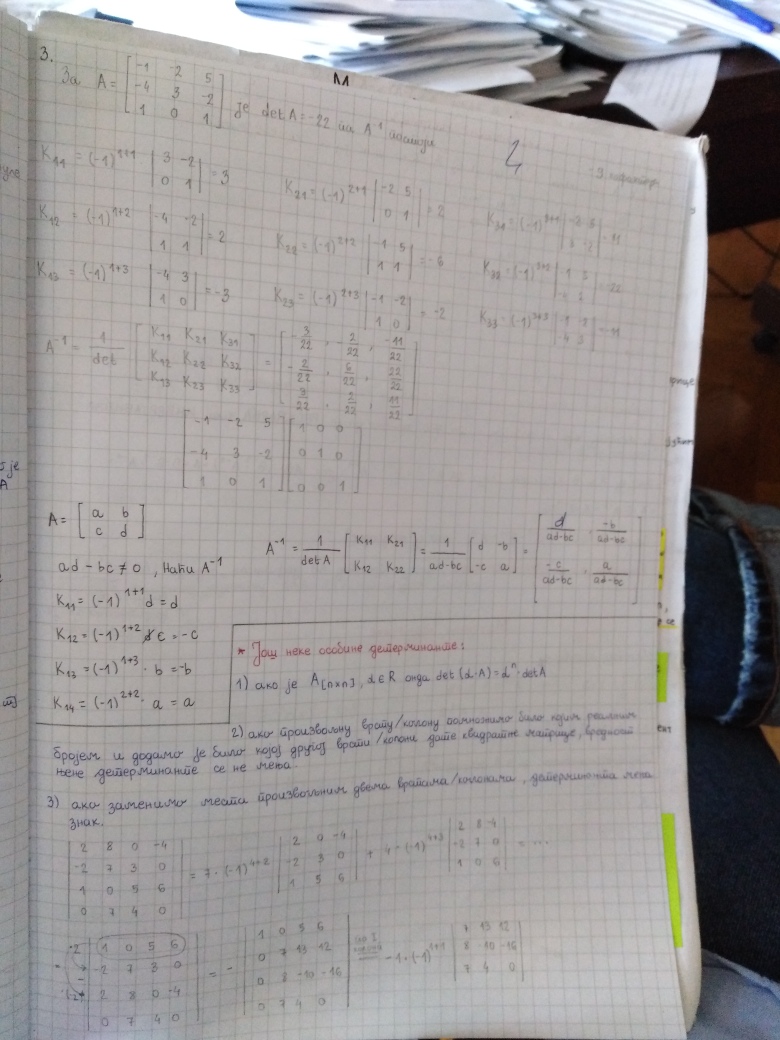 3.
За A = [ -1 -2 5
-4 3 -2
1 0 1 ] је det A = -22 па A⁻¹ постоји
K₁₁ = (-1)¹⁺¹ | 3 -2
0 1 | = 3
K₂₁ = (-1)²⁺¹ | -2 5
0 1 | = 2
K₃₁ = (-1)³⁺¹ | -2 5
3 -2 | = -11
K₁₂ = (-1)¹⁺² | -4 -2
1 1 | = 2
K₂₂ = (-1)²⁺² | -1 5
1 1 | = -6
K₁₃ = (-1)¹⁺³ | -4 3
1 0 | = -3
K₂₃ = (-1)²⁺³ | -1 -2
1 0 | = -2
A⁻¹ = 1/det [ K₁₁ K₂₁ K₃₁
K₁₂ K₂₂ K₃₂
K₁₃ K₂₃ K₃₃ ] =
[ -1 -2 5 ] [ 1 0 0 ]
[ -4 3 -2 ] [ 0 1 0 ]
[ 1 0 1 ] [ 0 0 1 ]
A = [ a b
c d ]
ad - bc ≠ 0 , Наћи A⁻¹
A⁻¹ = 1/det A [ K₁₁ K₂₁
K₁₂ K₂₂ ] = 1/ad-bc [ d -b
-c a ] = [ d/ad-bc , -b/ad-bc
-c/ad-bc , a/ad-bc ]
K₁₁ = (-1)¹⁺¹ d = d
K₁₂ = (-1)¹⁺² c = -c
K₁₃ = (-1)¹⁺³ · b = -b
K₁₄ = (-1)²⁺² · a = a
* Још неке особине детерминанте:
1) ако је A[n×n], α ∈ R онда det(α·A) = αⁿ · det A
2) ако произвољну врсту/колону помножимо било којим реалним
бројем и додамо је било којој другој врсти/колони дате квадратне матрице, вредност
њене детерминанте се не мења.
3) ако заменимо места произвољним двема врстама/колонама, детерминанта мења
знак.
| 2 8 0 -4
-2 7 3 0
1 0 5 6
0 7 4 0 | = 7 · (-1)⁴⁺² | 2 0 -4
-2 3 0
1 5 6 | + 4 · (-1)⁴⁺³ | 2 8 -4
-2 7 0
1 0 6 | = ...
| 1 0 5 6
-2 7 3 0
2 8 0 -4
0 7 4 0 | = - | 1 0 5 6
0 7 13 12
0 8 -10 -16
0 7 4 0 | = -1 · (-1)¹⁺¹ | 7 13 12
8 -10 -16
7 4 0 |